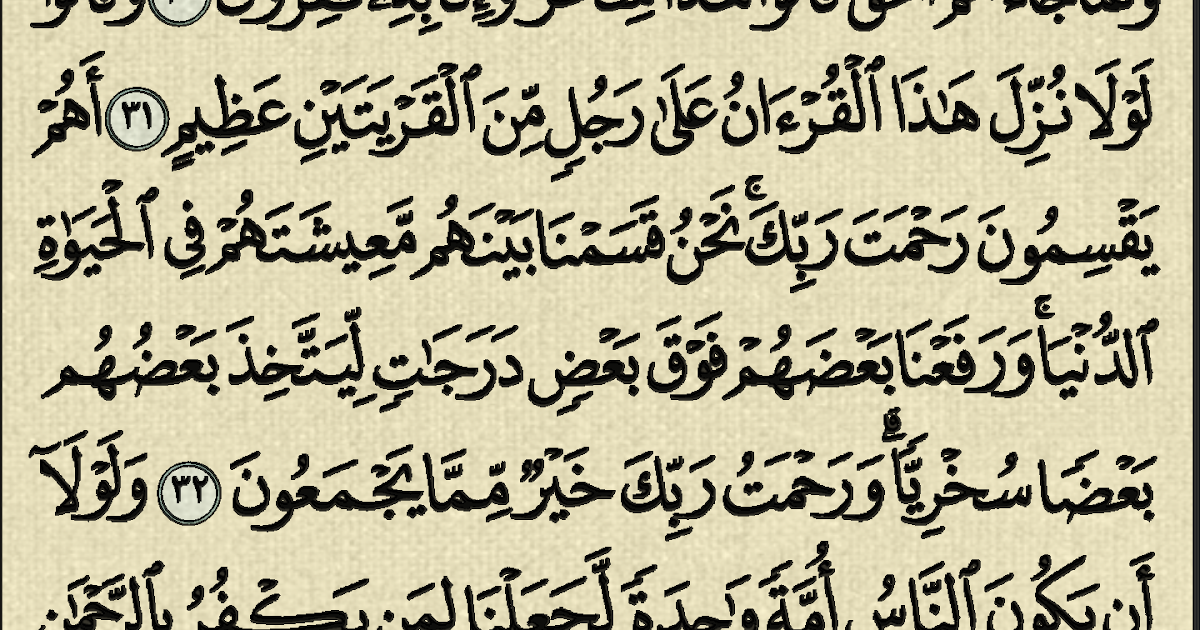 ولما جاءهم الحق قالوا هذا سحر وإنا به كفرون ٣٠ وقالوا
لَوْلَا نُزِّلَ هَٰذَا ٱلْقُرْءَانُ عَلَىٰ رَجُلٍ مِّنَ ٱلْقَرْيَتَيْنِ عَظِيمٍ ٣١ أَهُمْ
يَقْسِمُونَ رَحْمَتَ رَبِّكَ ۚ نَحْنُ قَسَمْنَا بَيْنَهُم مَّعِيشَتَهُمْ فِى ٱلْحَيَوٰةِ
ٱلدُّنْيَا ۚ وَرَفَعْنَا بَعْضَهُمْ فَوْقَ بَعْضٍ دَرَجَٰتٍ لِّيَتَّخِذَ بَعْضُهُم
بَعْضًا سُخْرِيًّا ۗ وَرَحْمَتُ رَبِّكَ خَيْرٌ مِّمَّا يَجْمَعُونَ ٣٢ وَلَوْلَآ
أَن يَكُونَ ٱلنَّاسُ أُمَّةً وَٰحِدَةً لَّجَعَلْنَا لِمَن يَكْفُرُ بِٱلرَّحْمَٰنِ